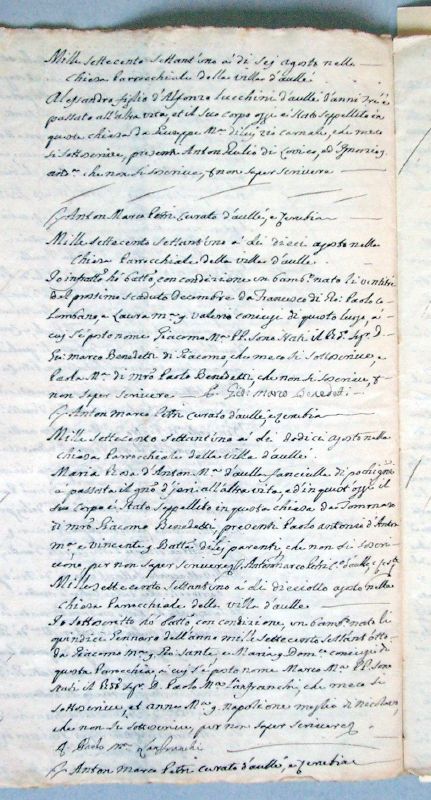 Mille settecento settant'uno a' di sej agosto nella
Chiesa Parrocchiale della villa d'aulle
Alessandro figlio d'Alfonzo Lucchini d'aulle d'anni tré é
passato all'altra vita, et il suo Corpo oggi é stato seppellito in
questa chiesa da Giuseppe Mª di lej zio carnale, che meco
si sottoscrive, presenti Anton Giulio di
che non si scrivere, per non saper scrivere
Anton Marco Petri Curato d'aullé, e Zerubia
Mille settecento settant'uno a' di dieci agosto nella
Chiesa Parrocchiale della villa d'aulle
Io infratto hó batto, con condizione un bambº nato li ventitre
del prossimo scaduto decembre da Francesco di Gio Paolo Co
lombano, e Laura mª q Valerio coniugi di questo luogo, a
cuj s'é posto nome Giacomo Mª PP. sono stati il
Gio Marco Benedetti di Giacomo, che meco si sottoscrive, e
Paola Mª di mrò Paolo Benedetti, che non si scrive, per
non saper scrivere Gio Marco Benedetti
Anton Marco Petri Curato d'aulle, e Zerubia
Mille settecento settantuno a' di dodici agosto nella
Chiesa Parrocchiale della villa d'aulle
Maria Rosa d'Anton Mª d'aulle fanciulla di pochi giorni
é passata il gno d'jeri all'altra vita, ed in quest'oggi il
suo Corpo é stato seppellito in questa chiesa da Tommaso
di mrò Giacomo Benedetti, presenti Paolo Antonio d'Anton
mª e Vincente q Battª di lej parenti, che non si soscri-
vono, per non saper scrivere Anton Marco Petri Cº d'aulle
Mille settecento settantuno a' di dieciotto agosto nella
Chiesa Parrocchiale della villa d'aulle
Io sottoscritto hó batto, con condizione, un bambº nato li
quindici Gennaro dell'anno mille settecento settant'otto
da Giacomo mª q Gio Sante, e Maria q Domco coniugi di
questa Parrocchia, a cuj s'é posto nome Marco Mª PP. sono
stati il D. Paolo Mª Lanfranchi, che meco si
sottoscrive, et anna Mª q Napolione moglie di
che non si sottoscrive, per non saper scrivere
Paolo Mª Lanfranchi
Anton Marco Petri Curato d'aulle, e Zerubia